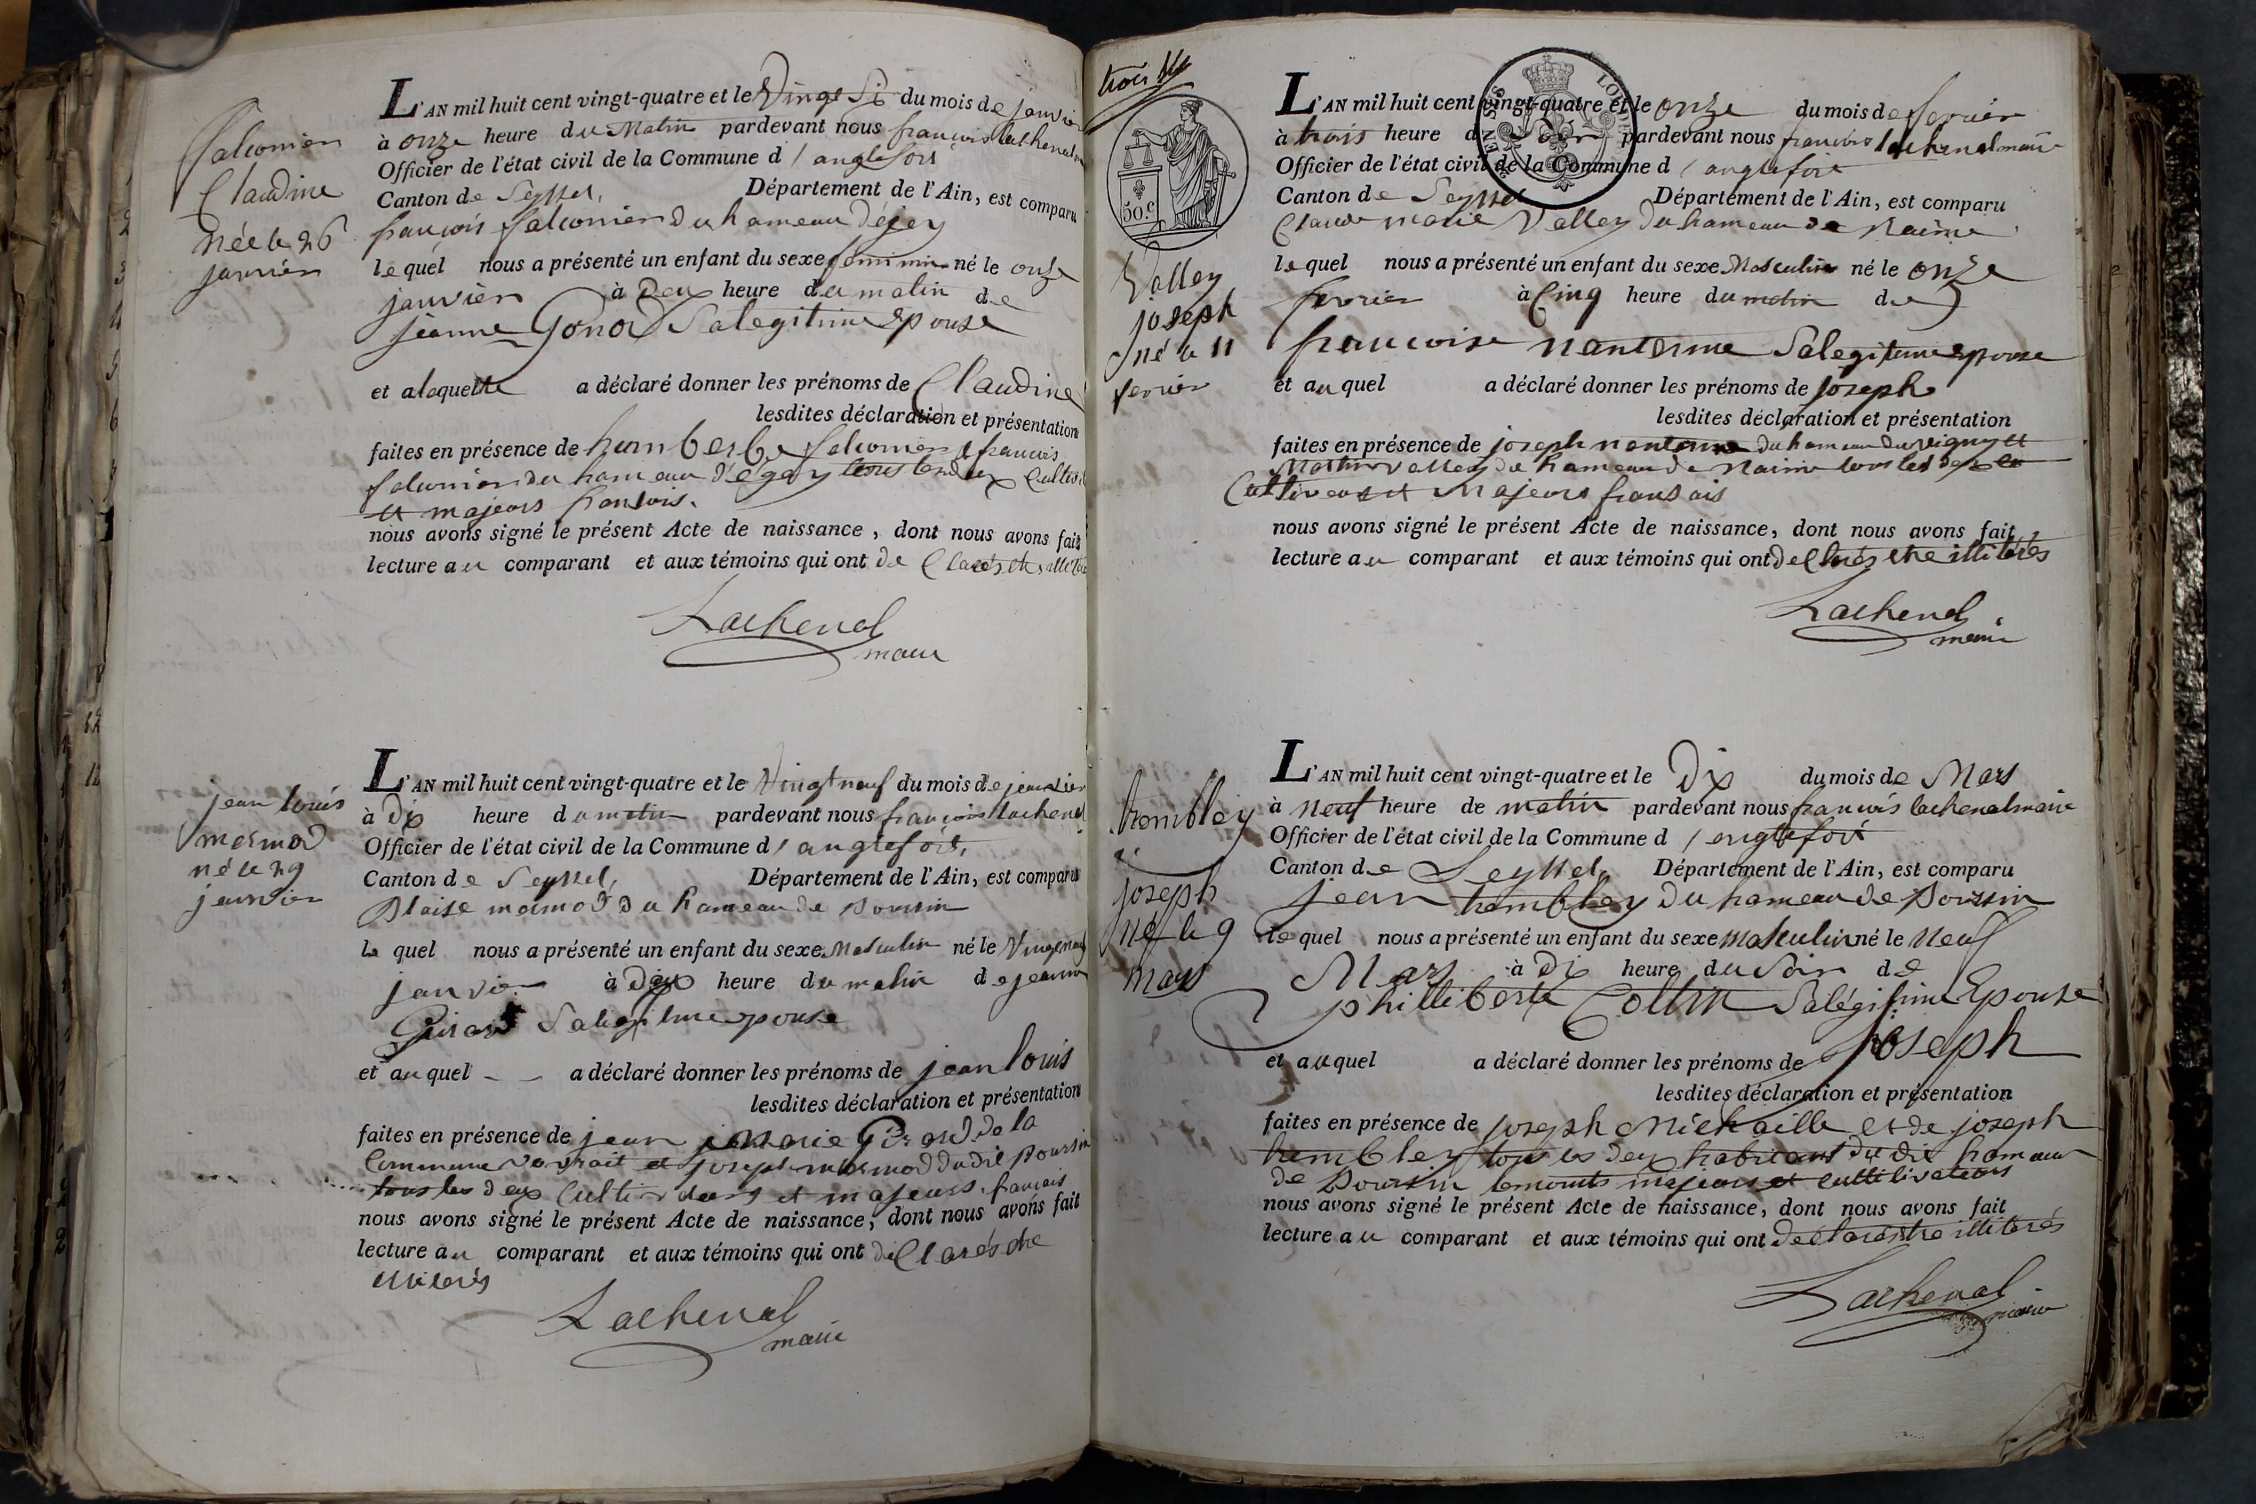 falconier
Claudine
née le 26
janvier
L'AN mil huit cent vingt-quatre et le Vingt Si du mois de janvier
à onze heure du Matin pardevant nous francois lachenal
Officier de l'état civil de la Commune d'anglefort
Canton de Seyssel, Département de l'Ain, est comparu
francois falconier du hameau d'éjey
lequel nous a présenté un enfant du sexe feminin né le onze
janvier à Deux heure du matin de
jeanne Gonod Sa legitime Epouse
et a laquelle a déclaré donner les prénoms de Claudine
lesdites déclaration et présentation
faites en présence de humberbe falconier & francois
falconier du hameau d'égey tous les deux Cultiv
et majeurs francois.
nous avons signé le présent Acte de naissance, dont nous avons fait
lecture au comparant et aux témoins qui ont de Clarés
Lachenal
maire
jean louis
mermod
né le 29
janvier
L'AN mil huit cent vingt-quatre et le Vingt neuf du mois de janvier
à Dix heure du matin pardevant nous francois lachenal
Officier de l'état civil de la Commune d'anglefort,
Canton de Seyssel, Département de l'Ain, est comparu
Blaise mermod du hameau de Poursin
le quel nous a présenté un enfant du sexe Masculin né le Vingt neuf
janvier à Deux heure du matin de jeanne
Girard Sa legitime epouse
et au quel - - a déclaré donner les prénoms de jean louis
lesdites déclaration et présentation
faites en présence de jean Marie Girard de la
Commune et joseph mermod dudit Poursin
tous les deux Cultivateurs et majeurs francais
nous avons signé le présent Acte de naissance, dont nous avons fait
lecture au comparant et aux témoins qui ont déClarés etre
illiterés
Lachenal
maire
trois
50.C
Valley
joseph
né le 11
fevrier
L'AN mil huit cent vingt-quatre et le onze du mois de fevrier
à trois heure du Soir pardevant nous francois lachenal maire
Officier de l'état civil de la Commune d'anglefort
Canton de Seyssel Département de l'Ain, est comparu
Claude marie Valley du hameau de
lequel nous a présenté un enfant du sexe Masculin né le onze
fevrier à Cinq heure du matin de
francoise nanterme Sa legitime epouse
et au quel a déclaré donner les prénoms de joseph
lesdites déclaration et présentation
faites en présence de joseph nanterme du hameau du vigny et
Martin valley du hameau de tous les deux
Cultiveurs et Majeurs fransais
nous avons signé le présent Acte de naissance, dont nous avons fait
lecture au comparant et aux témoins qui ont declarés etre illiterés
Lachenal
maire
trembley
joseph
né le 9
mars
L'AN mil huit cent vingt-quatre et le Dix du mois de Mars
à neuf heure de matin pardevant nous francois lachenal maire
Officier de l'état civil de la Commune d'anglefort
Canton de Seyssel, Département de l'Ain, est comparu
jean trembley du hameau de Poursin
lequel nous a présenté un enfant du sexe masculin né le neuf
Mars à Dix heure du Soir de
philliberte Collin Sa légitime Epouse
et auquel a déclaré donner les prénoms de joseph
lesdites déclaration et présentation
faites en présence de joseph Michaille et de joseph
trembley tous les deux habitant du dit hameau
de Poursin temoints majeurs et cultivateurs
nous avons signé le présent Acte de naissance, dont nous avons fait
lecture au comparant et aux témoins qui ont déClarés etre illiterés
Lachenal
maire